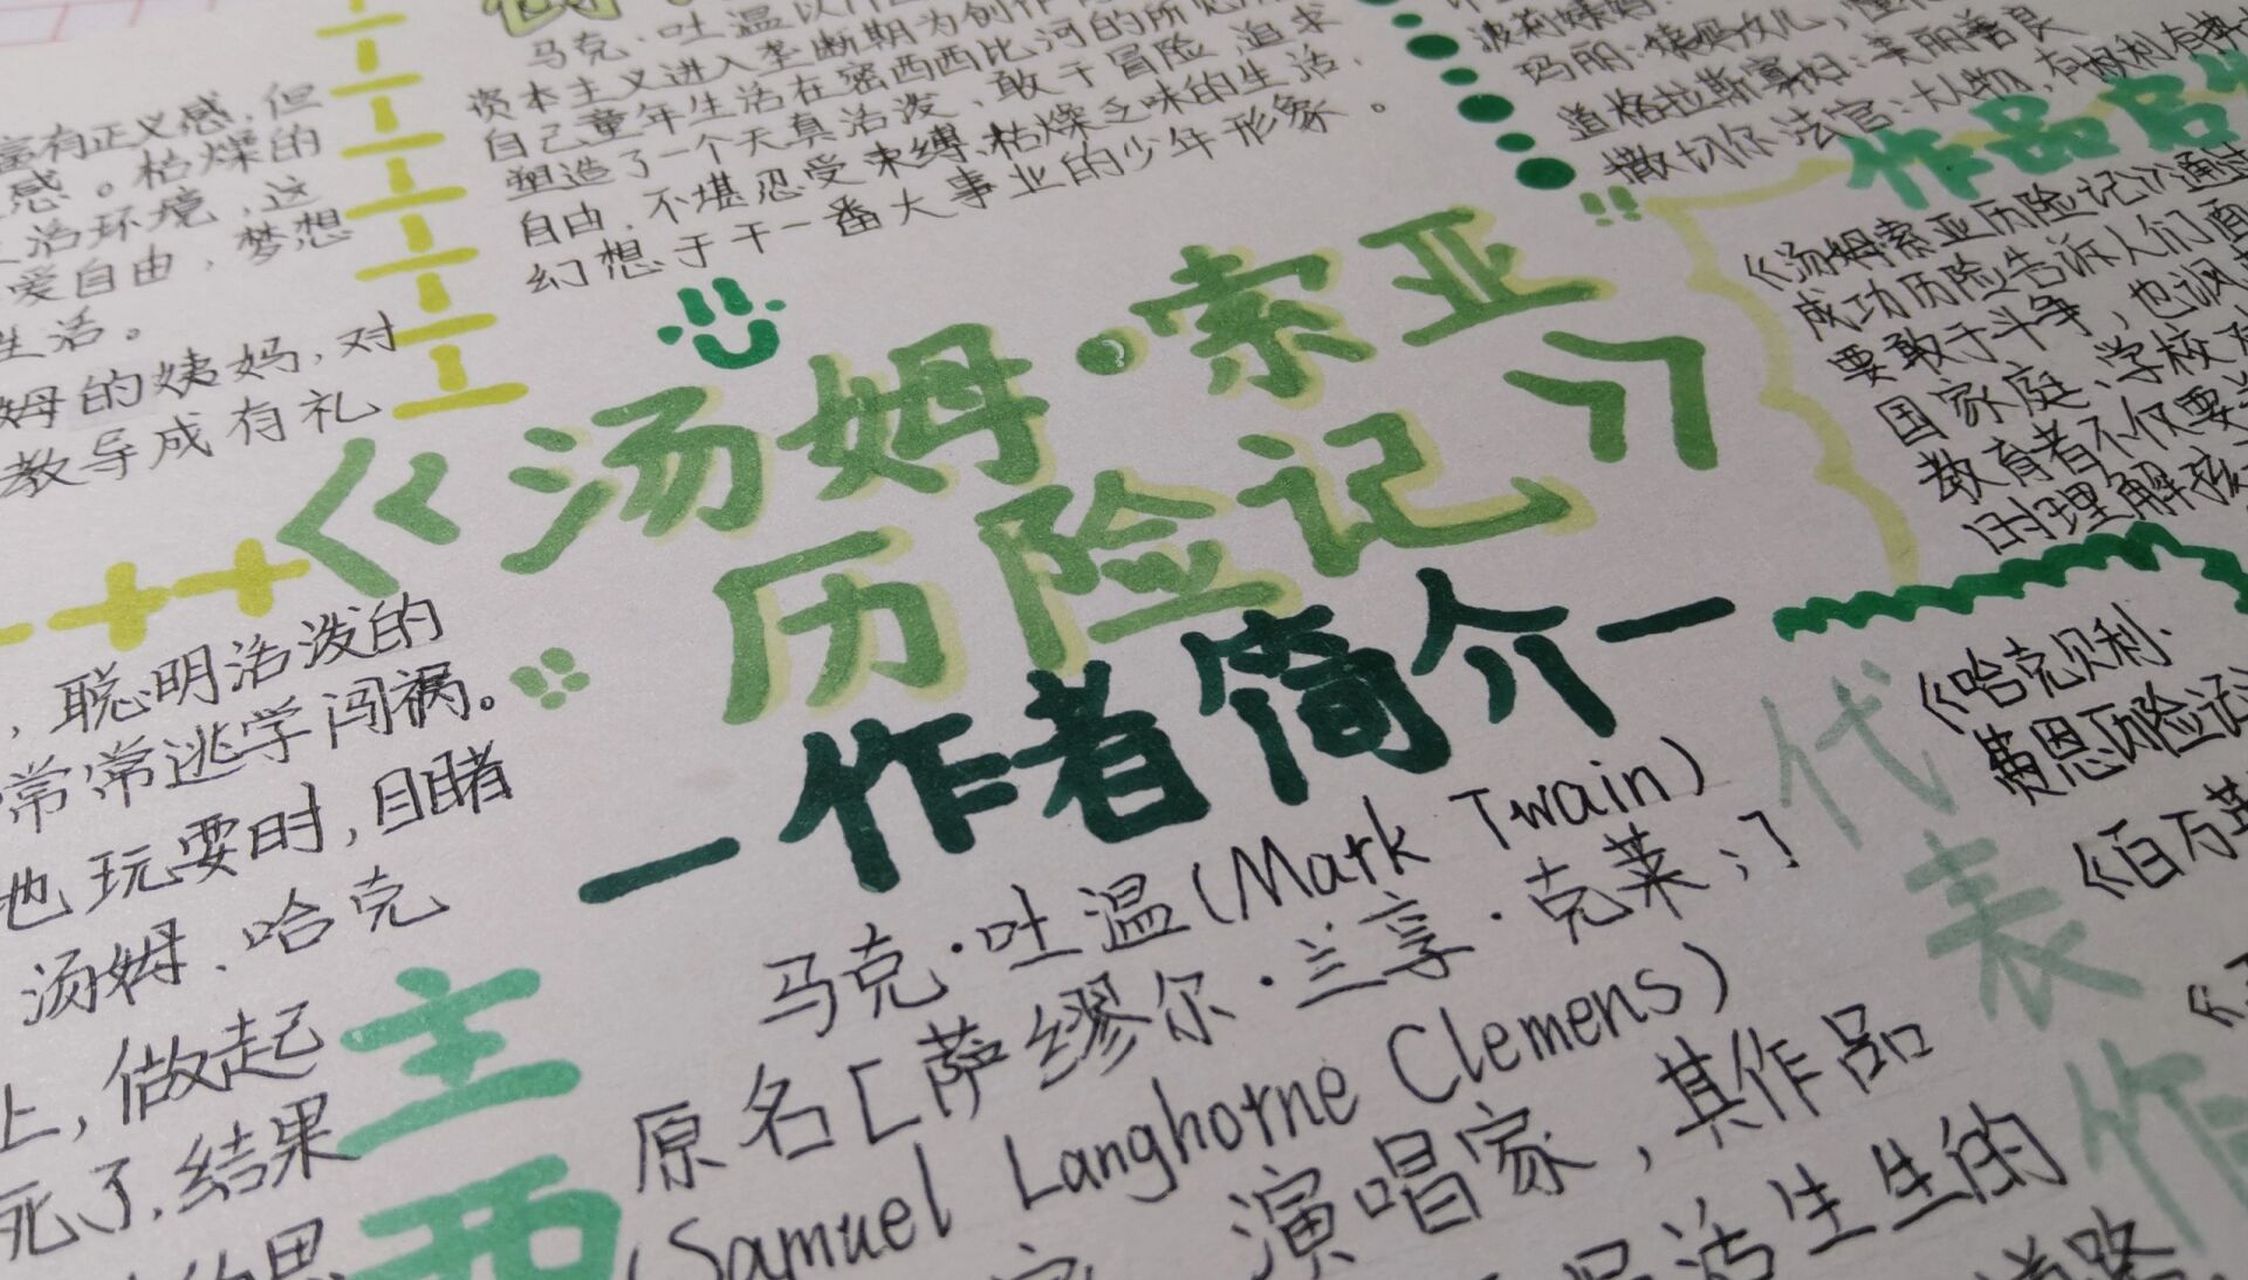 资本主义进入垄断期为创作
自己童年生活在密西西比河的所见
塑造了一个天真活泼、敢于冒险、追求
自由、不堪忍受束缚、枯燥乏味的生活、
幻想于干一番大事业的少年形象。
富有正义感,但
感。枯燥的
活环境,这
爱自由,梦想
生活。
姆的姨妈,对
教导成有礼
玛丽:姨妈女儿,
道格拉斯寡妇:美丽善良
撒切尔法官:大人物,有权利有
作品启
《汤姆索亚历险记》通过
成功历险告诉人们面
要敢于斗争,也讽
国家庭、学校
教育者不仅要
的理解孩
《汤姆·索亚
历险记》
,聪明活泼的
常常逃学闯祸。
也玩耍时,目睹
汤姆、哈克
上,做起
死了,结果
主
—作者简介—
马克·吐温(Mark Twain)
原名[萨缪尔·兰亨·克莱门]
(Samuel Langhorne Clemens)
演唱家,其作品
活生生的
道路
代表作
《哈克贝利·
费恩历险记
《百万英